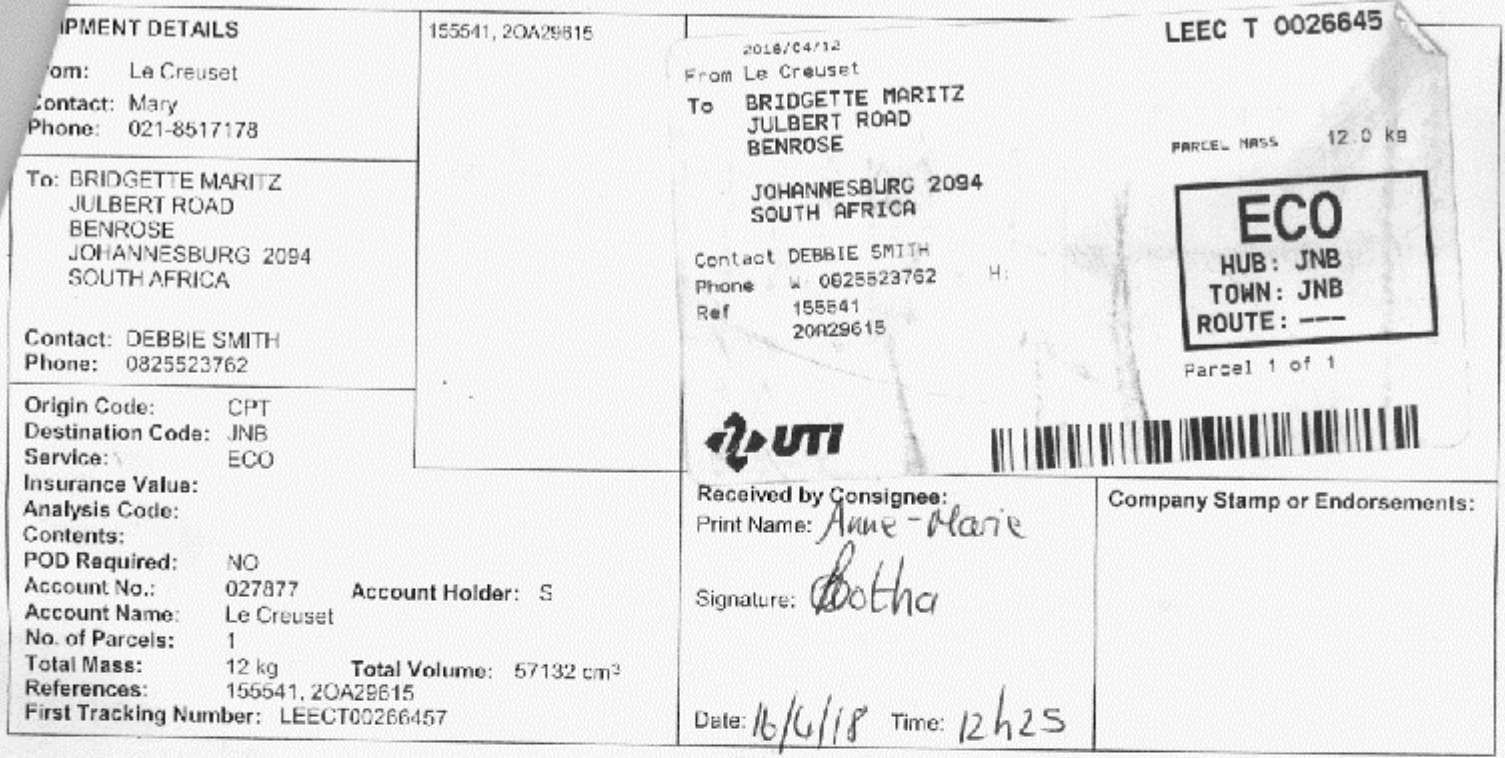 IPMENT DETAILS
om: Le Creuset
Contact: Mary
Phone: 021-8517178
To: BRIDGETTE MARITZ
JULBERT ROAD
BENROSE
JOHANNESBURG 2094
SOUTH AFRICA
Contact: DEBBIE SMITH
Phone: 0825523762
Origin Code: CPT
Destination Code: JNB
Service: ECO
Insurance Value:
Analysis Code:
Contents:
POD Required: NO
Account No.: 027877 Account Holder: S
Account Name: Le Creuset
No. of Parcels: 1
Total Mass: 12 kg Total Volume: 57132 cm³
References: 155541, 2OA29615
First Tracking Number: LEECT00266457
155541, 2OA29615
LEEC T 0026645
2018/04/12
From Le Creuset
To BRIDGETTE MARITZ
JULBERT ROAD
BENROSE
JOHANNESBURG 2094
SOUTH AFRICA
PARCEL MASS 12.0 kg
Contact DEBBIE SMITH
Phone W: 0825523762 H:
Ref 155541
20A29615
ECO
HUB: JNB
TOWN: JNB
ROUTE: ---
Parcel 1 of 1
UTI
Received by Consignee:
Print Name: Anne-Marie
Signature: Botha
Date: 16/4/18 Time: 12h25
Company Stamp or Endorsements: